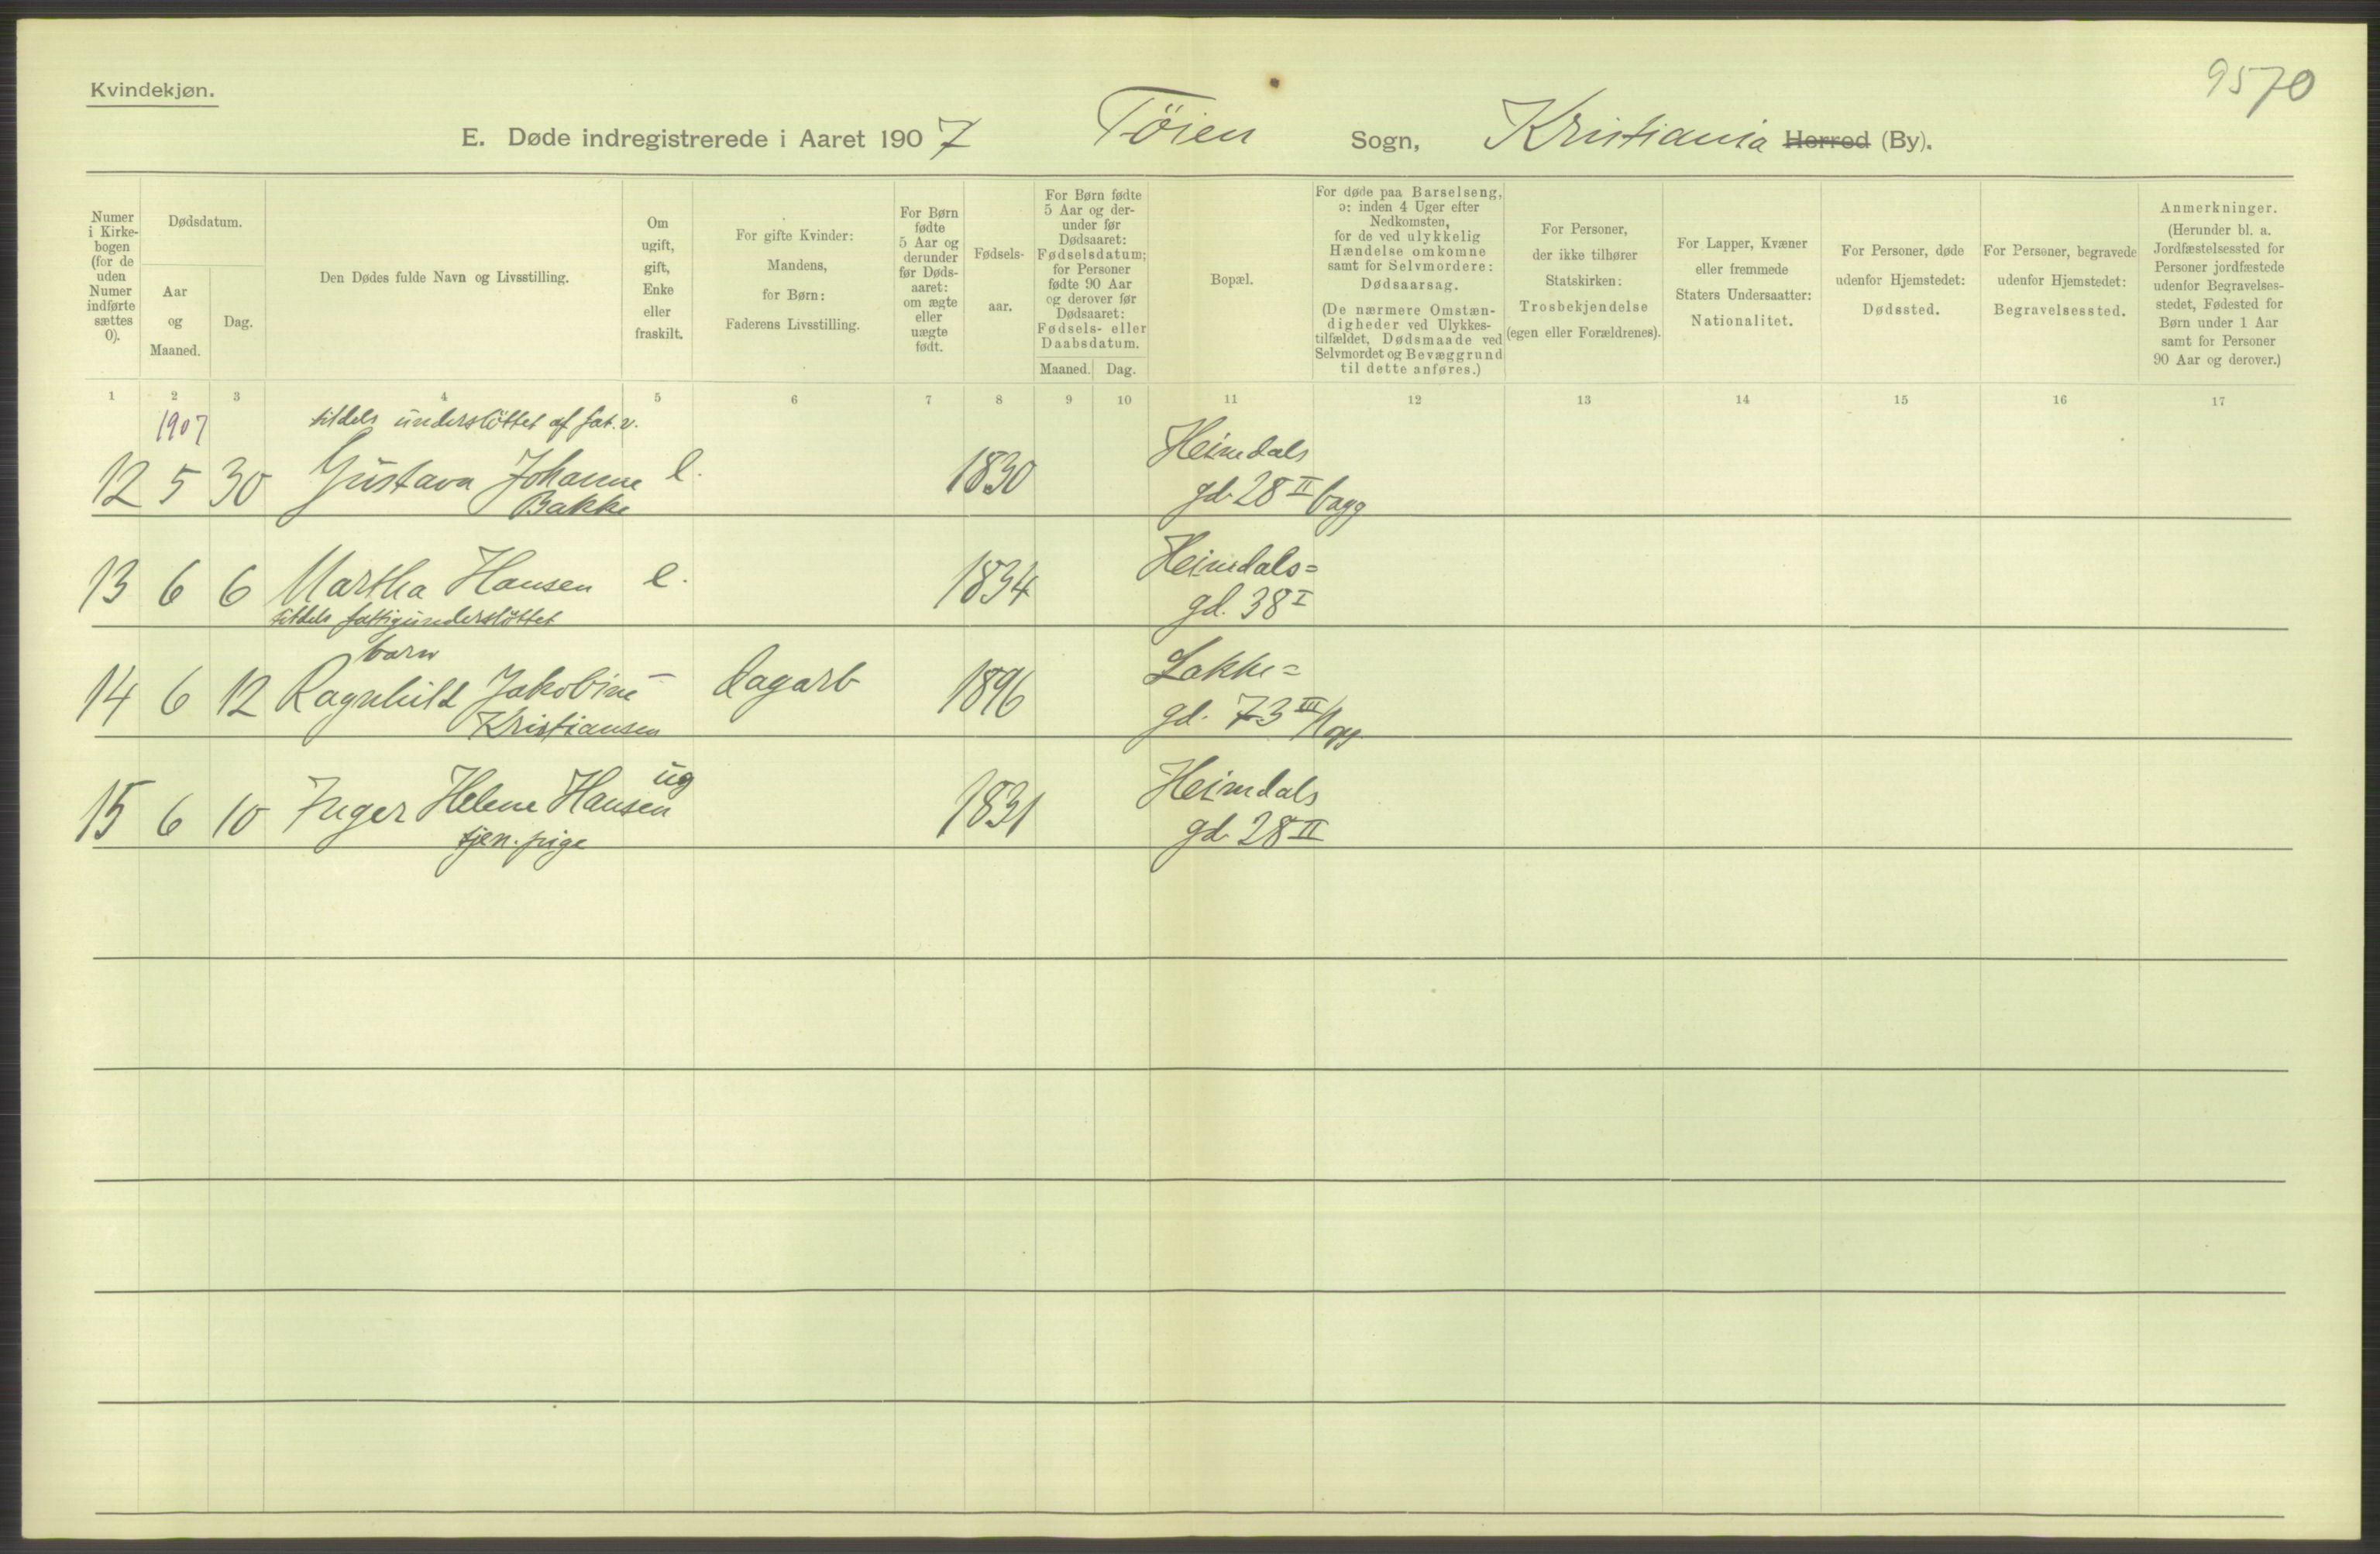 9570
Kvindekjøn.
E. Døde indregistrerede i Aaret 1907 Töien Sogn, Kristiania Herred (By).
Numer
i Kirke-
bogen
(for de
uden
Numer
indførte
sættes
0).
Dødsdatum.
Aar
og
Maaned.
Dag.
Den Dødes fulde Navn og Livsstilling.
Om
ugift,
gift,
Enke
eller
fraskilt.
For gifte Kvinder:
Mandens,
for Børn:
Faderens Livsstilling.
For Børn
fødte
5 Aar og
derunder
før Døds-
aaret:
om ægte
eller
uægte
født.
Fødsels-
aar.
For Børn fødte
5 Aar og der-
under før
Dødsaaret:
Fødselsdatum;
for Personer
fødte 90 Aar
og derover før
Dødsaaret:
Fødsels- eller
Daabsdatum.
Maaned. Dag.
Bopæl.
For døde paa Barselseng,
ɔ: inden 4 Uger efter
Nedkomsten,
for de ved ulykkelig
Hændelse omkomne
samt for Selvmordere:
Dødsaarsag.
(De nærmere Omstæn-
digheder ved Ulykkes-
tilfældet, Dødsmaade ved
Selvmordet og Bevæggrund
til dette anføres.)
For Personer,
der ikke tilhører
Statskirken:
Trosbekjendelse
(egen eller Forældrenes).
For Lapper, Kvæner
eller fremmede
Staters Undersaatter:
Nationalitet.
For Personer, døde
udenfor Hjemstedet:
Dødssted.
For Personer, begravede
udenfor Hjemstedet:
Begravelsessted.
Anmerkninger.
(Herunder bl. a.
Jordfæstelsessted for
Personer jordfæstede
udenfor Begravelses-
stedet, Fødested for
Børn under 1 Aar
samt for Personer
90 Aar og derover.)
1 2 3 4 5 6 7 8 9 10 11 12 13 14 15 16 17
1907 tildels understöttet af fat.v.
12 5 30 Gustava Johanne e. 1830 Heimdals
Bakke gd. 28 II bagg
13 6 6 Martha Hansen e. 1834 Heimdals=
tildels fattigunderstöttet gd. 38 I
barn
14 6 12 Ragnhild Jakobine – dagarb 1896 Lakke=
Kristiansen gd. 73 III
15 6 10 Inger Helene Hansen ug 1831 Heimdals
tjen. pige gd. 28 II